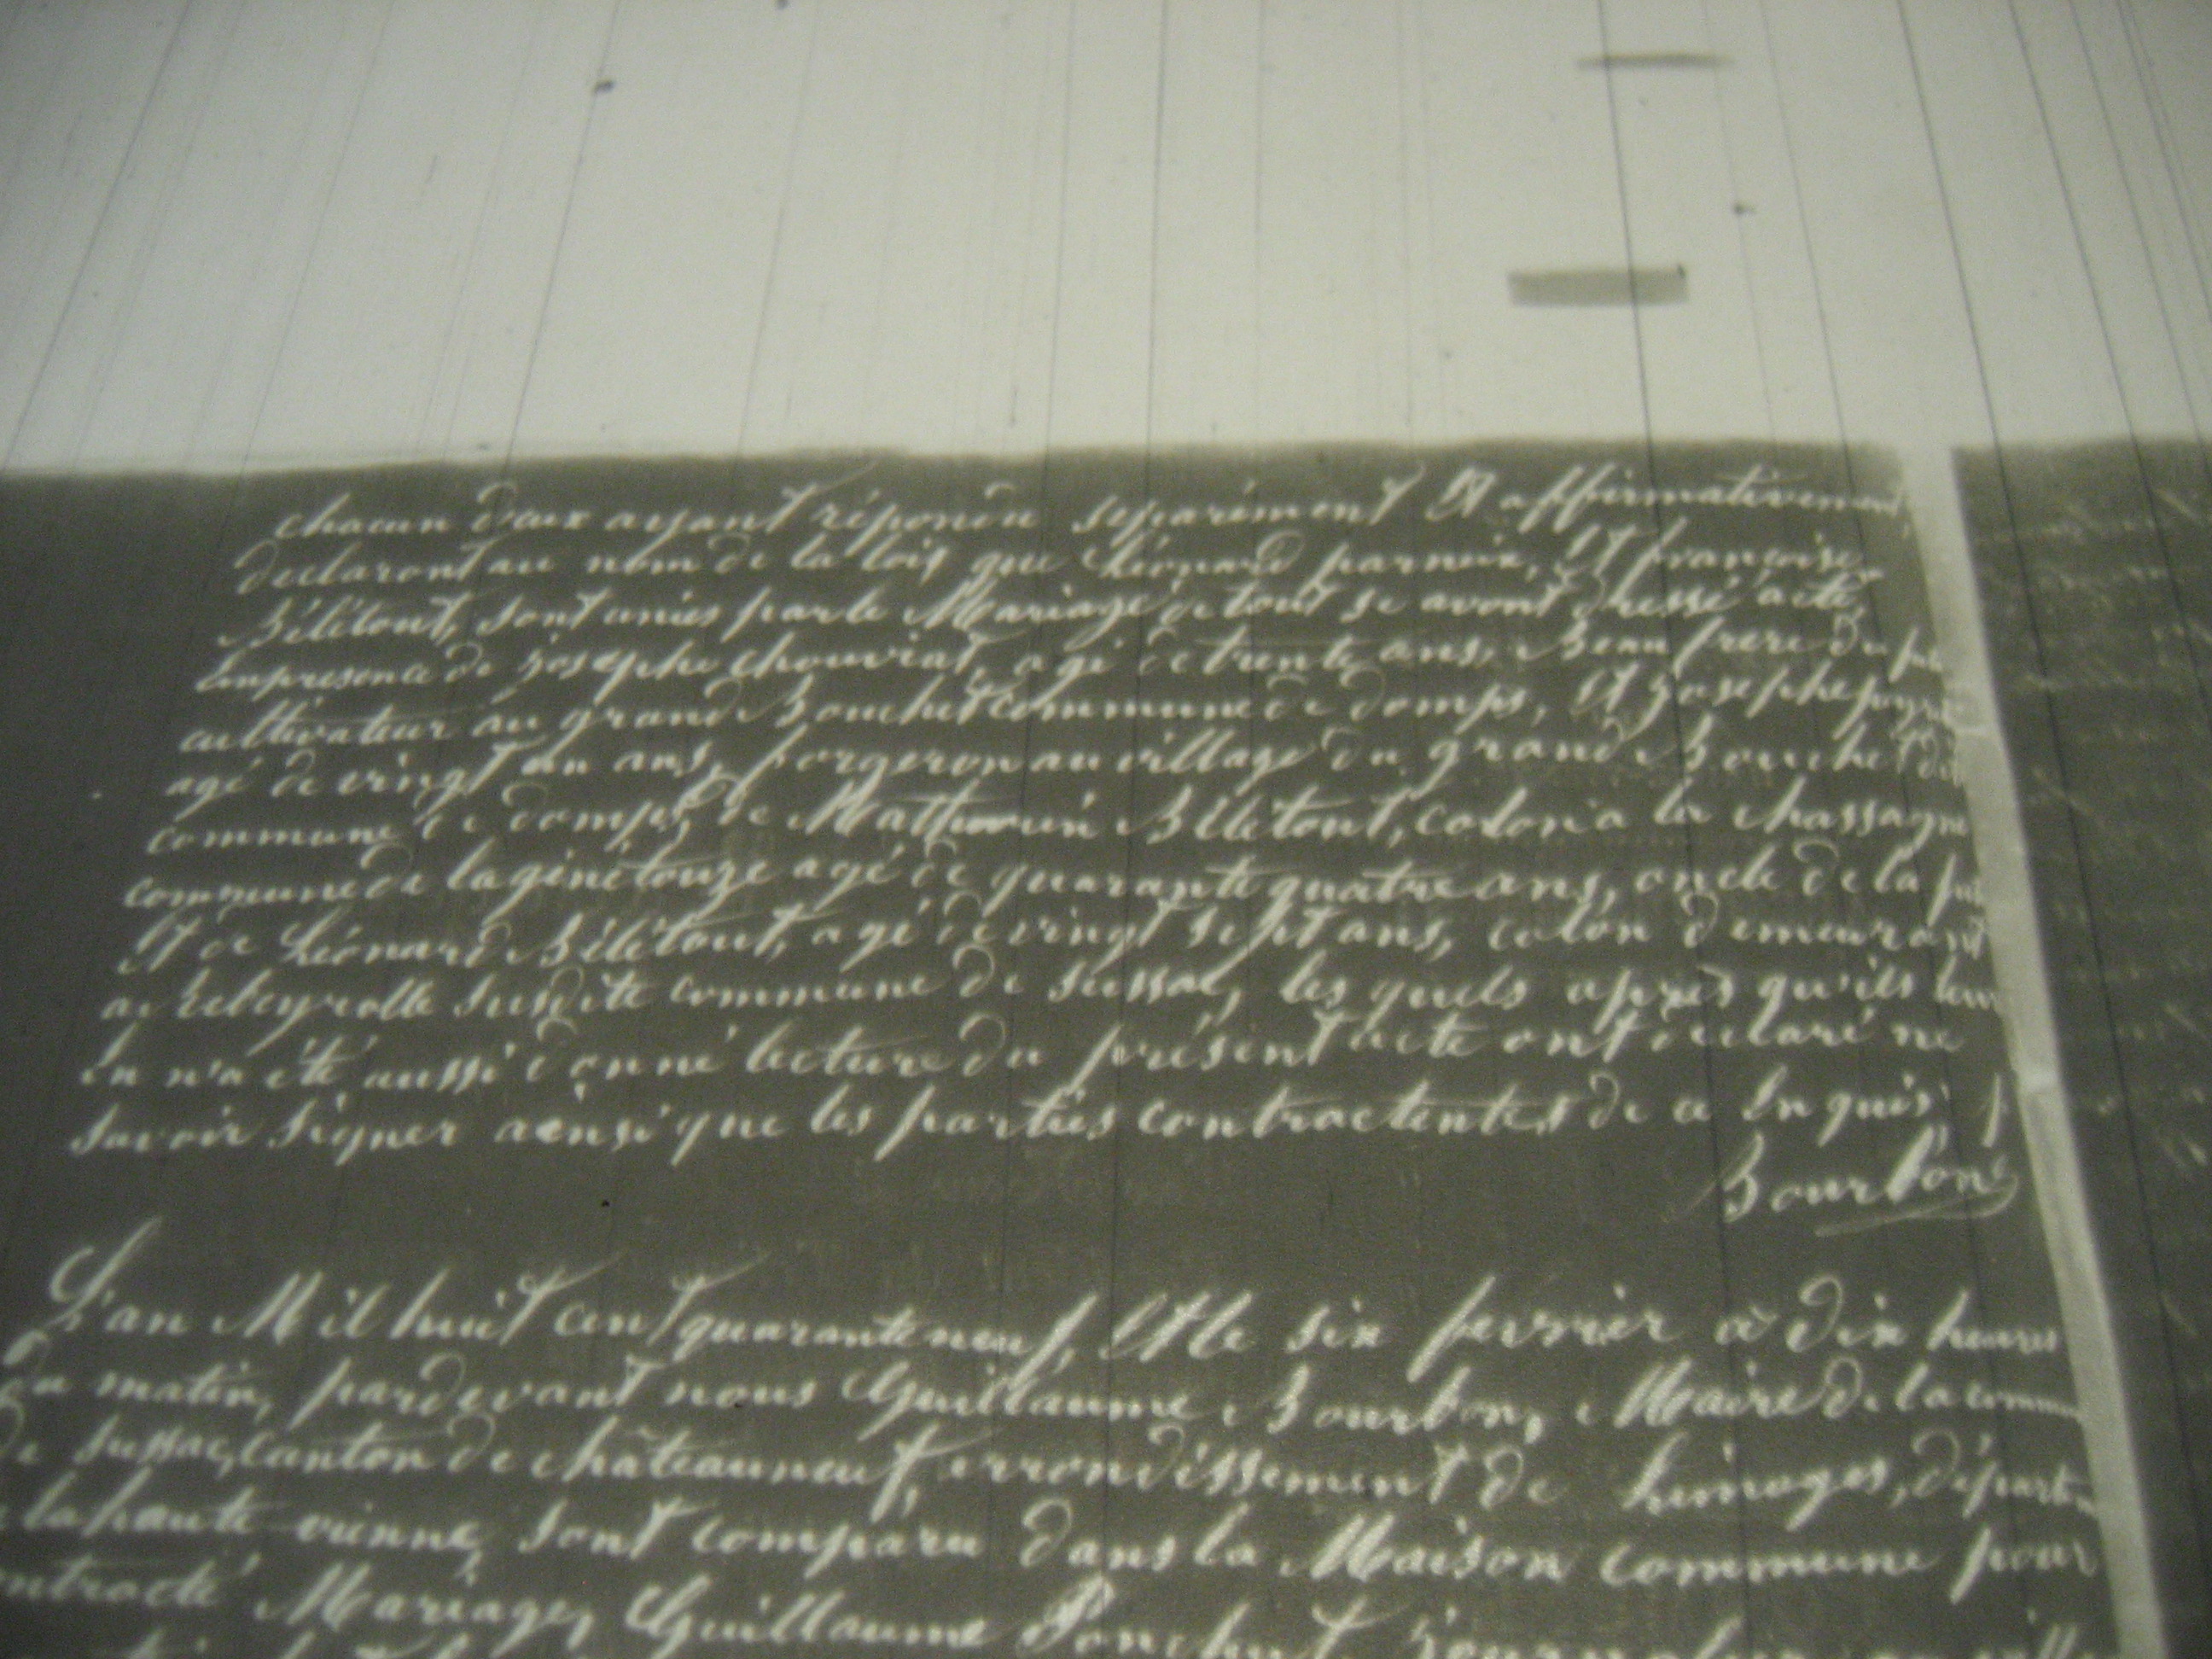 chacun deux ayant répondu séparément Et affirmativement,
declaront au nom de la loix que Léonard parneix, Et françoise
Bélétout, sont unies par le Mariage, de tout se avont dressé acte,
Enpresence de Josephe chouviat, agé de trente ans, Beau frere du
cultivateur au grand Bouchet commune de domps, Et Josephe
agé de vingt un ans, forgeron au village du grand Bouchet
commune de domps, de Mathurin Bélétout, colon à la chassagne
commune de lagénétouze agé de quarante quatre ans, oncle de la
Et de Léonard Bélétout, agé de vingt sept ans, colon demeurant
a Rebeyrolle susdite commune de Sussac, les quels après qu'ils leur
En n'a été aussi donné lecture du présent acte ont déclaré ne
savoir signer ainsi que les parties contractentes de ce Enquis
Bourbon
L'an Mil huit cent quaranteneuf, Et le six fevrier à dix heures
du matin, pardevant nous Guillaume Bourbon, Maire de la commune
de Sussac, Canton de châteauneuf, arrondissement de Limoges, départem
la haute vienne, sont comparu dans la Maison commune pour
ntracté Mariage, Guillaume Ponchut